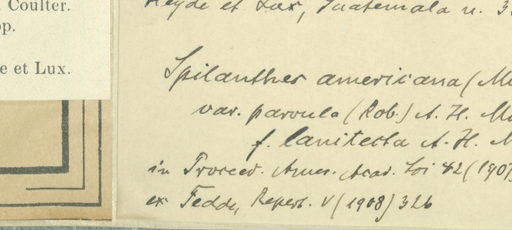 Coulter.
et Lux.
Heyde et Lux, Guatemala n. 3
Spilanthes americana (M
var. parvula (Rob.) A. H. Mo
f. lanitecta A. H. M
in Proceed. Amer. Acad. Sci 42 (1907
ex Fedde, Repert. V (1908) 326